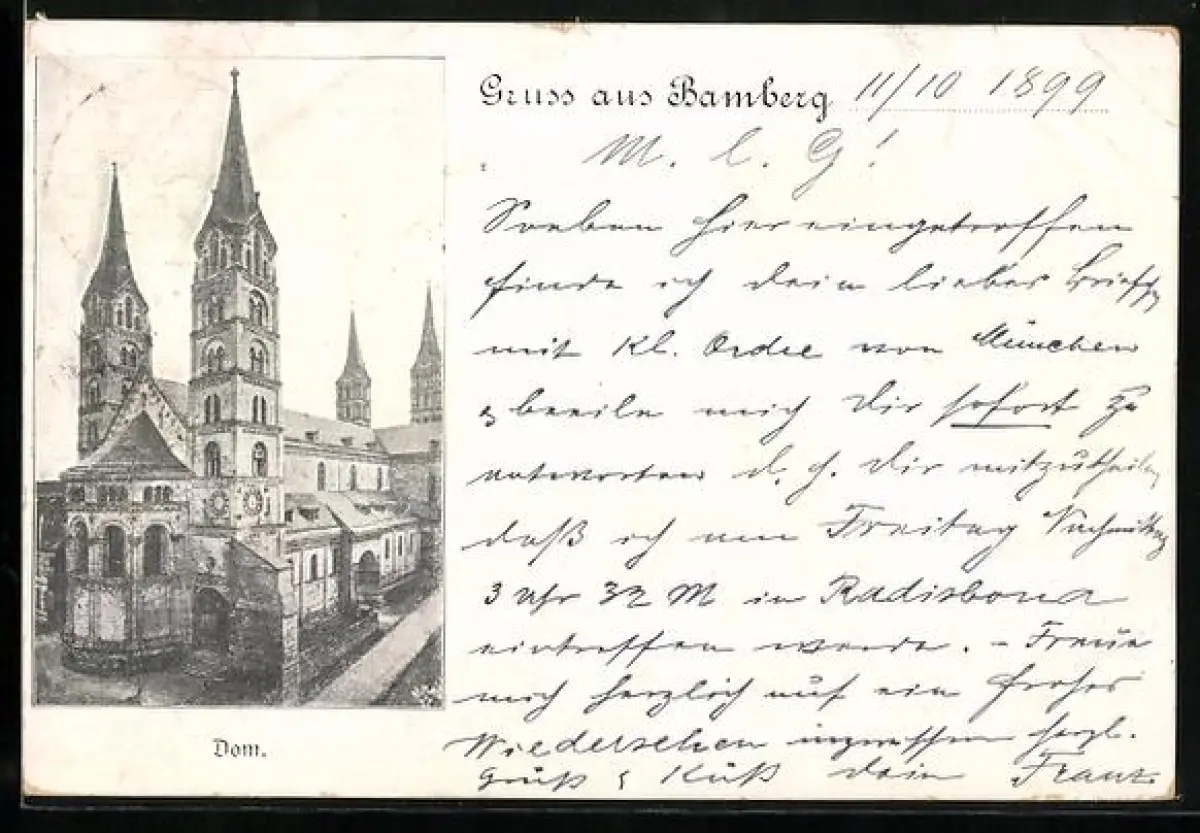 Gruss aus Bamberg 11/10 1899
M. l. G!
Soeben hier eingetroffen
finde ich dein lieber Brief
mit kl. Ordre von München
& beeile mich Dir sofort zu
antworten d. h. Dir mitzutheilen
daß ich am Freitag Nachmittag
3 Uhr 32 M in Radisbona
eintreffen werde. – Freue
mich herzlich auf ein frohes
Wiedersehen inzwischen herzl.
Gruß & Kuß dein Franz.
Dom.